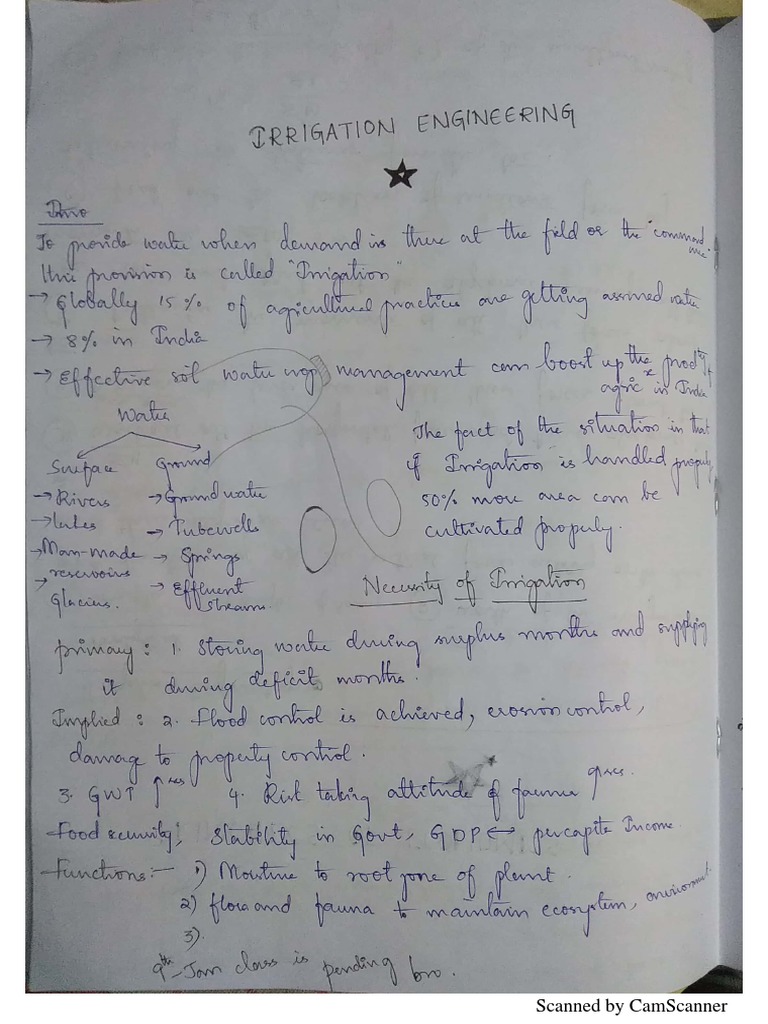 IRRIGATION ENGINEERING
Intro
To provide water when demand is there at the field or the "command
this provision is called "Irrigation"
→ Globally 15% of agricultural practices are getting assured water
→ 8% in India
→ Effective soil water crop management can boost up the prod
agric in India
Water
Surface Ground
→ Rivers → Ground water
→ lakes → Tubewells
→ Man-made → Springs
→ reservoirs → Effluent
Glaciers. streams.
The fact of the situation is that
if Irrigation is handled properly
50% more area can be
cultivated properly.
Necessity of Irrigation
primary : 1. Storing water during surplus months and supplying
it during deficit months.
Implied : 2. Flood control is achieved, erosion control,
damage to property control.
3. GWT ↑ses 4. Risk taking attitude of farmer ↑ses.
Food security, Stability in Govt, GDP ↔ percapita Income.
Functions:- 1) Moisture to root zone of plant.
2) flora and fauna to maintain ecosystem, environment.
3).
9th-Jan class is pending bro.
Scanned by CamScanner